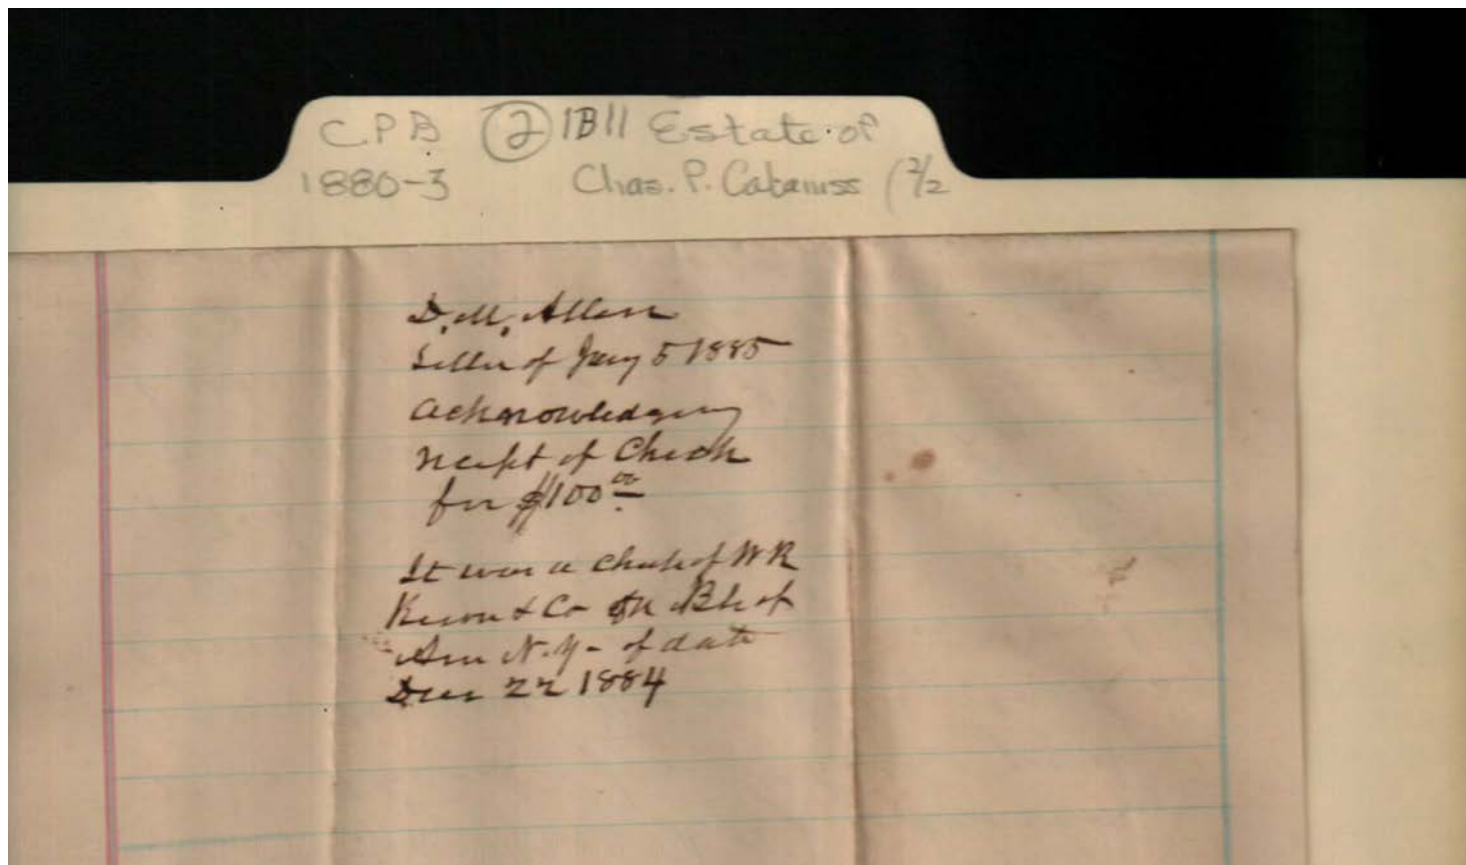 C.P.B ② 1B11 Estate of
1880-3 Chas. P. Cabaniss (2/2
D. M. Allen
Letter of Jany 5 1885
acknowledging
receipt of Check
for $100.00
It was a check of W R
& Co on Bk of
Am N.Y - of date
Decr 22 1884